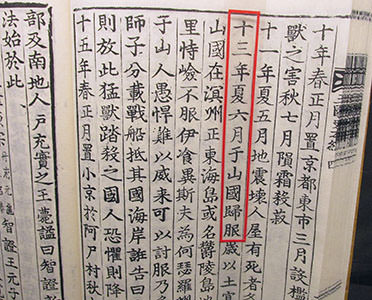 十年春正月置京都東市三月設檻
獸之害秋七月隕霜殺菽
十一年夏五月地震壞人屋有死者
十三年夏六月于山國歸服歲以土
山國在溟州正東海島或名欝陵島地
里恃嶮不服伊飡異斯夫為何瑟羅
于山人愚悍難以威來可以計服乃多
師子分載戰船抵其國海岸誑告曰
則放此猛獸踏殺之國人恐懼則降
十五年春正月置小京於阿尸村秋
部及南地人戶充實之王薨謚曰智證
法始於此